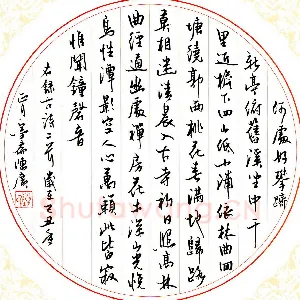 何處好攀躋
新亭俯舊溪坐中千
里近檐下四山低小浦依林曲回
塘繞郭西桃花春滿地歸路
莫相迷清晨入古寺初照高林
曲徑通幽處禪房花木深山光悅
鳥性潭影空人心萬籟此皆寂
惟聞鐘磬音
右錄古詩二首歲在
正月